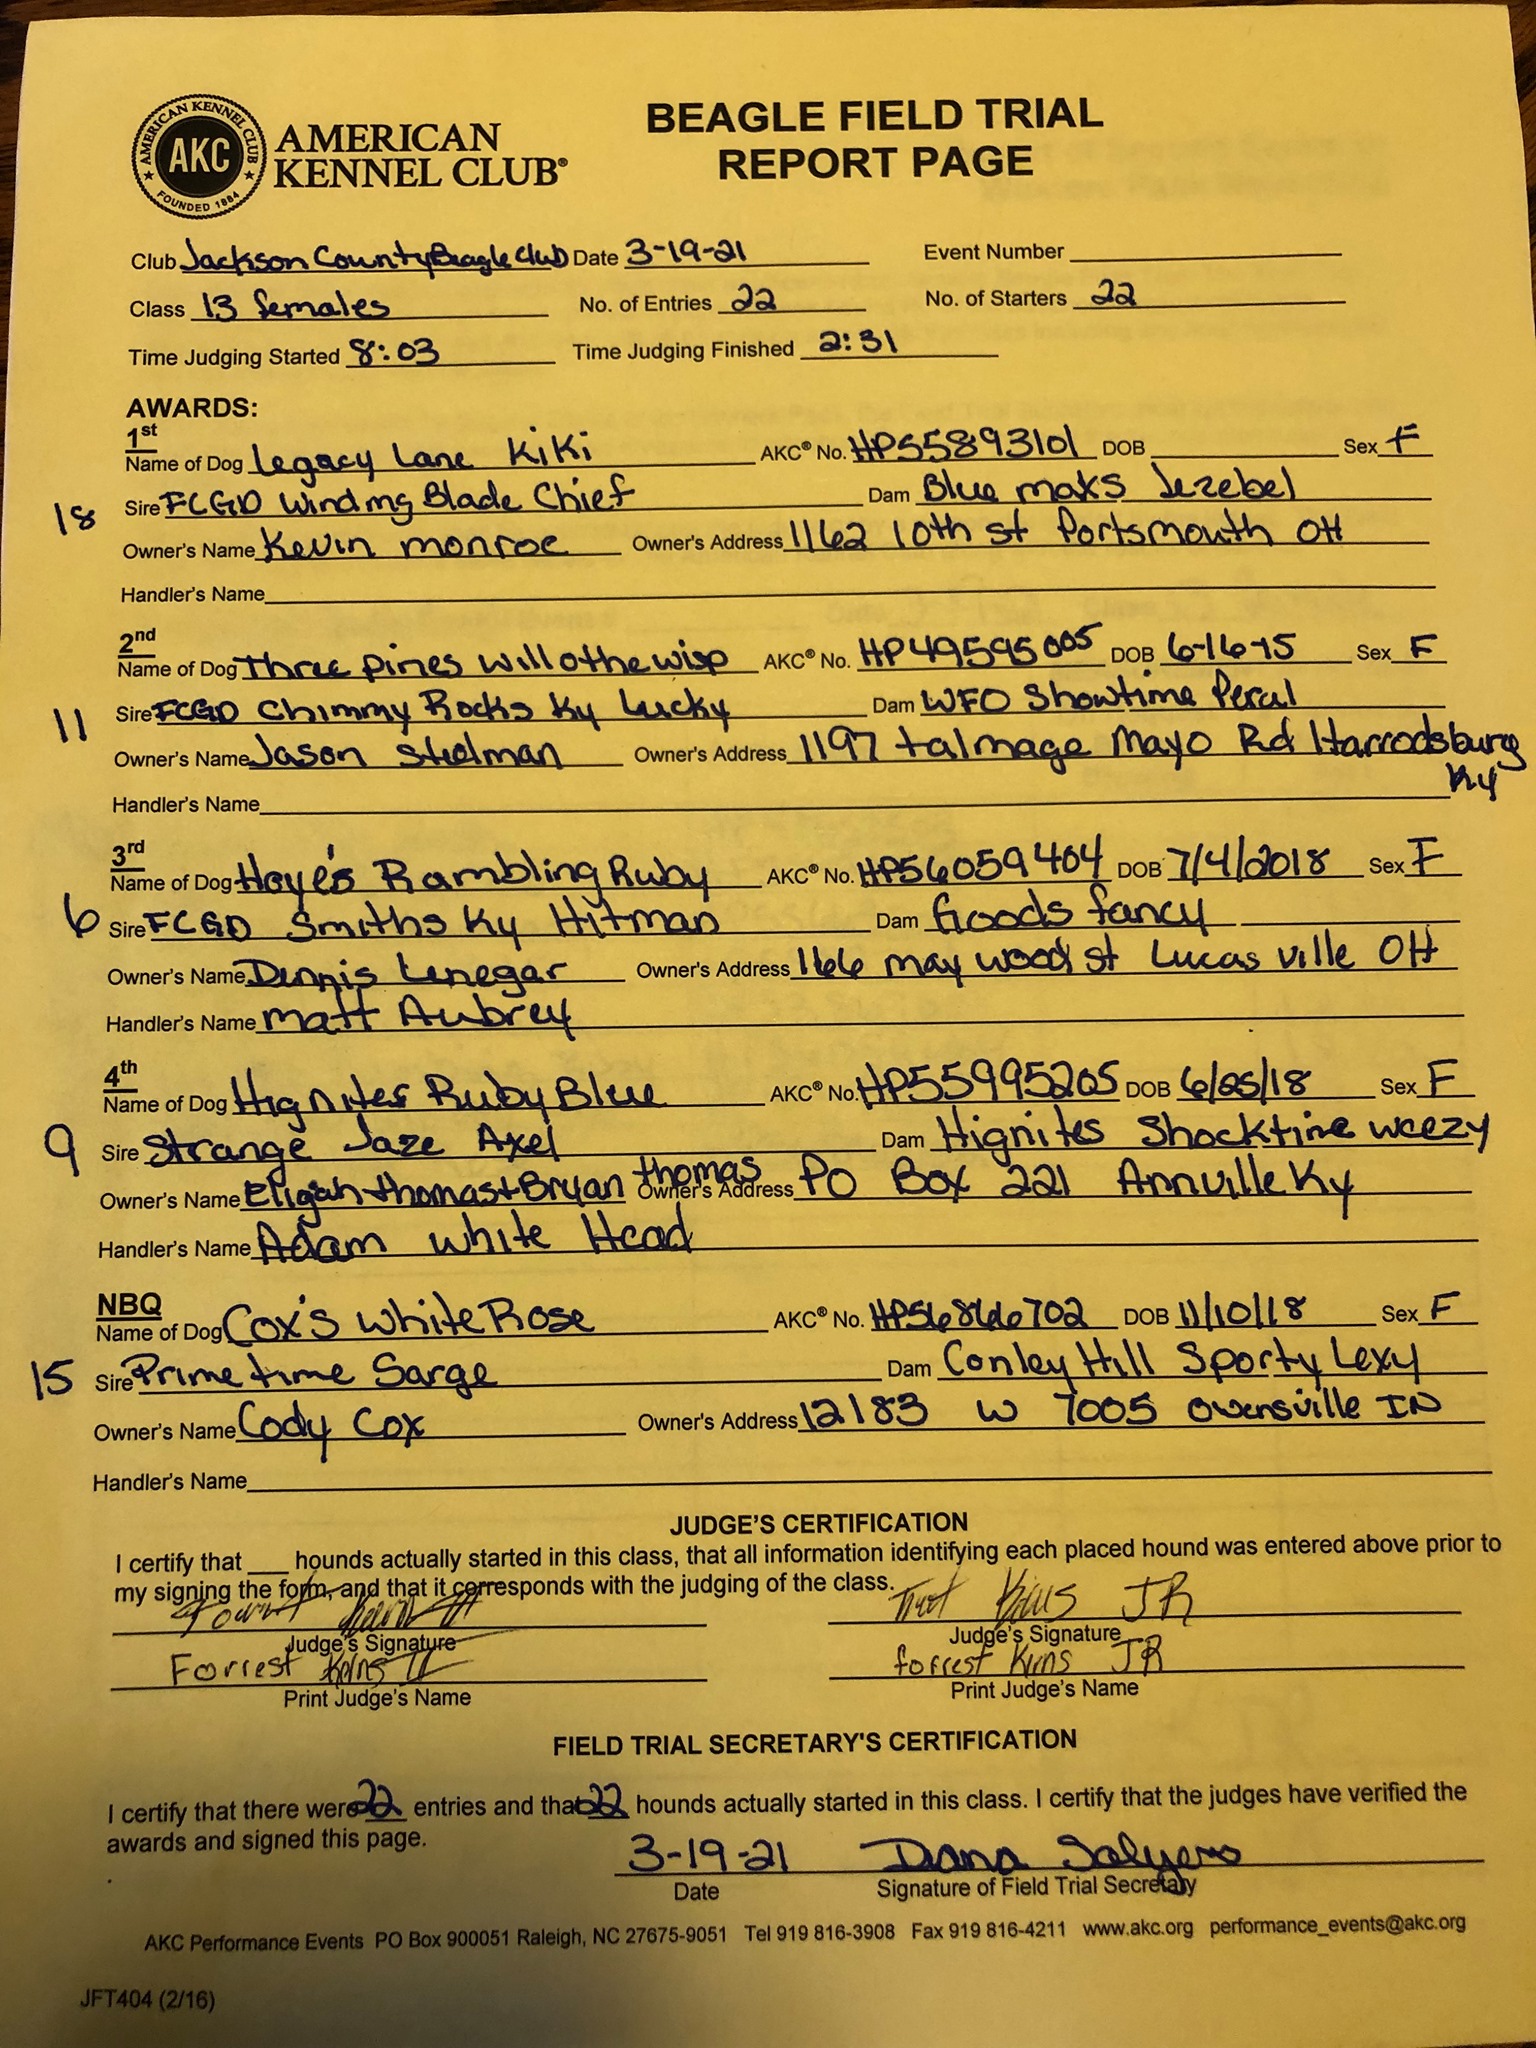 AMERICAN KENNEL CLUB
AKC
FOUNDED 1884
AMERICAN
KENNEL CLUB®
BEAGLE FIELD TRIAL
REPORT PAGE
Club Jackson County Beagle Club Date 3-19-21 Event Number
Class 13 females No. of Entries 22 No. of Starters 22
Time Judging Started 8:03 Time Judging Finished 2:31
AWARDS:
1st
Name of Dog Legacy Lane KiKi AKC® No. HP55893101 DOB Sex F
18 Sire FCGD Winding Blade Chief Dam Blue maks Jezebel
Owner's Name Kevin monroe Owner's Address 1162 10th st Portsmouth OH
Handler's Name
2nd
Name of Dog Three pines willothewisp AKC® No. HP49595005 DOB 6-16-15 Sex F
11 Sire FCGD Chimmy Rocks Ky Lucky Dam WFO Showtime Peral
Owner's Name Jason Owner's Address 1197 talmage Mayo Rd Harrodsburg
Ky
Handler's Name
3rd
Name of Dog Haye's Rambling Ruby AKC® No. HP56059404 DOB 7/4/2018 Sex F
6 Sire FCGD Smiths Ky Hitman Dam Goods fancy
Owner's Name Dennis Lenegar Owner's Address 166 may wood st Lucas ville OH
Handler's Name matt Aubrey
4th
Name of Dog Hignites Ruby Blue AKC® No. HP55995205 DOB 6/25/18 Sex F
9 Sire Strange Jaze Axel Dam Hignites Shocktime weezy
Owner's Name Eligah thomas + Bryan thomas Owner's Address PO Box 221 Annville Ky
Handler's Name Adam white Head
NBQ
Name of Dog Cox's White Rose AKC® No. HP56866702 DOB 11/10/18 Sex F
15 Sire Prime time Sarge Dam Conley Hill Sporty Lexy
Owner's Name Cody Cox Owner's Address 12183 W 700S Owensville IN
Handler's Name
JUDGE'S CERTIFICATION
I certify that ___ hounds actually started in this class, that all information identifying each placed hound was entered above prior to
my signing the form, and that it corresponds with the judging of the class.
JR
Judge's Signature Judge's Signature
Forrest Kirns JR
Print Judge's Name Print Judge's Name
FIELD TRIAL SECRETARY'S CERTIFICATION
I certify that there were 22 entries and that 22 hounds actually started in this class. I certify that the judges have verified the
awards and signed this page.
3-19-21 Dana Salyers
Date Signature of Field Trial Secretary
AKC Performance Events PO Box 900051 Raleigh, NC 27675-9051 Tel 919 816-3908 Fax 919 816-4211 www.akc.org performance_events@akc.org
JFT404 (2/16)